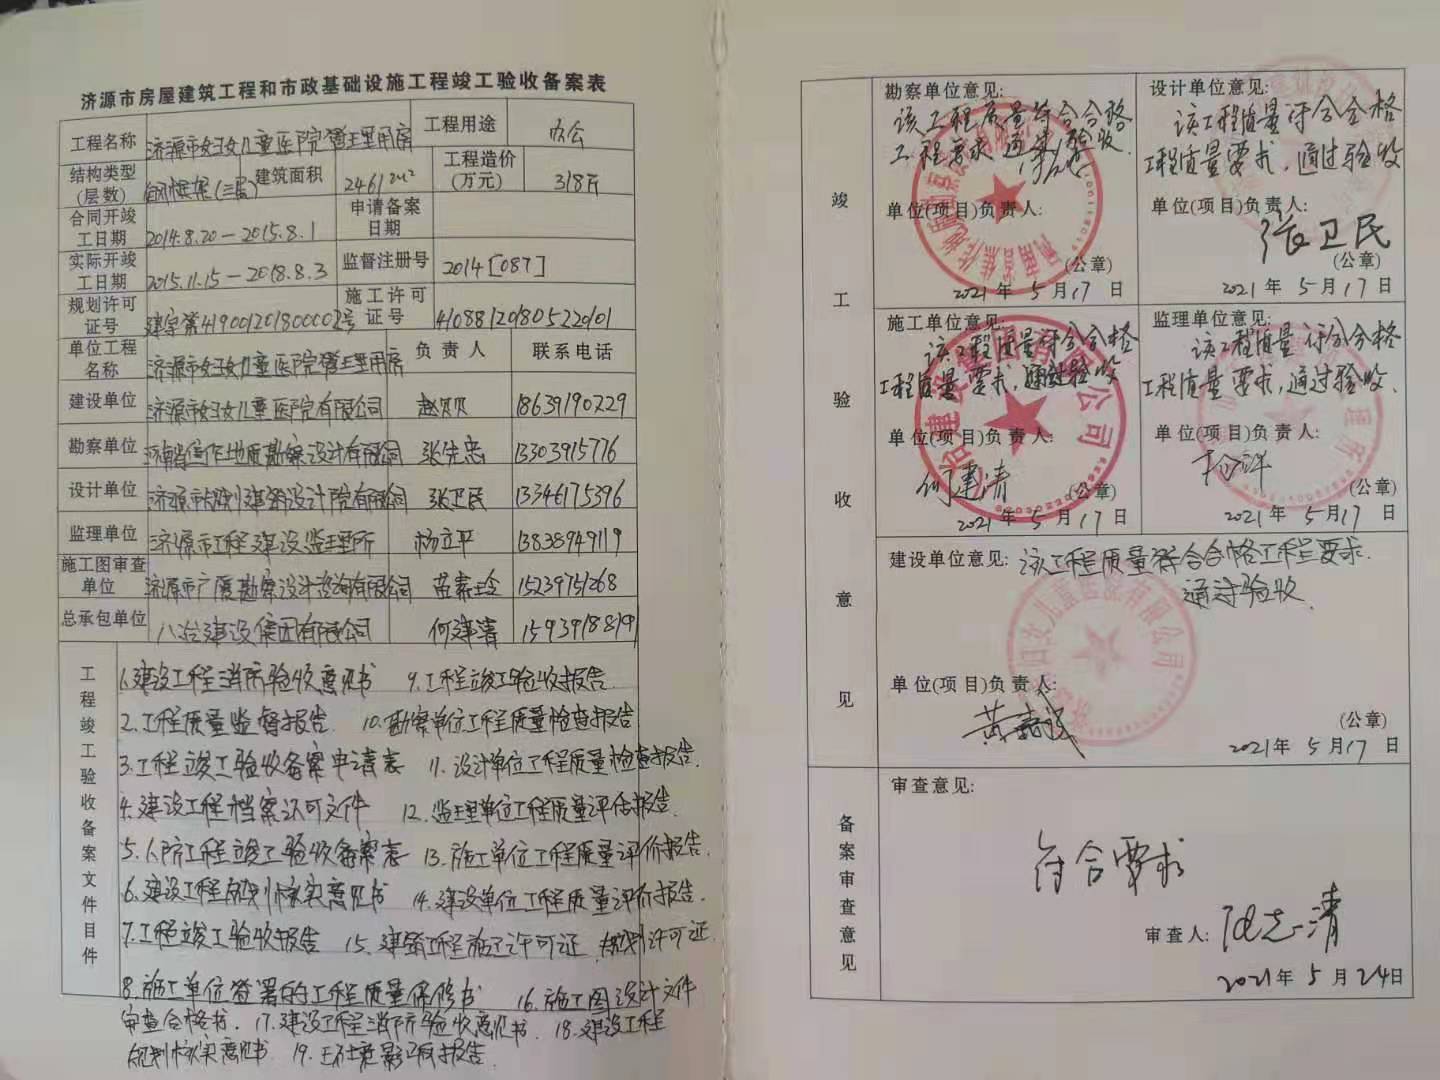 济源市房屋建筑工程和市政基础设施工程竣工验收备案表
工程名称 济源市妇女儿童医院管理用房 工程用途 办公
结构类型(层数) 钢框架(三层) 建筑面积 2461m² 工程造价(万元) 318万
合同开竣工日期 2014.8.20—2015.8.1 申请备案日期
实际开竣工日期 2015.11.15—2018.8.3 监督注册号 2014[087]
规划许可证号 建字第419001201800002号 施工许可证号 410881201805220101
单位工程名称 济源市妇女儿童医院管理用房 负责人 联系电话
建设单位 济源市妇女儿童医院有限公司 18639190229
勘察单位 张先忠 13303915776
设计单位 济源市规划建筑设计院有限公司 张卫民 13346175396
监理单位 济源市工程建设监理所 杨立平 13838949119
施工图审查单位 济源市广厦勘察设计咨询有限公司 15239751268
总承包单位 八冶建设集团有限公司 何建清 15939188191
工程竣工验收备案文件目件
1.建设工程消防验收意见书 9.工程竣工验收报告.
2.工程质量监督报告 10.勘察单位工程质量检查报告
3.工程竣工验收备案申请表 11.设计单位工程质量检查报告.
4.建设工程档案认可文件 12.监理单位工程质量评估报告.
5.人防工程竣工验收备案表 13.施工单位工程质量评价报告.
6.建设工程规划核实意见书 14.建设单位工程质量评价报告.
7.工程竣工验收报告 15.建筑工程施工许可证.规划许可证.
8.施工单位签署的工程质量保修书 16.施工图设计文件
审查合格书.17.建设工程消防验收意见书.18.建设工程
规划核实意见书 19.环境影响报告.
竣工验收意见
勘察单位意见:
该工程质量符合合格
工程要求 通过验收.
单位(项目)负责人:
(公章)
2021年5月17日
设计单位意见:
该工程质量符合合格
工程质量要求,通过验收
单位(项目)负责人:
张卫民
(公章)
2021年5月17日
施工单位意见:
该工程质量符合合格
工程质量要求,通过验收
单位(项目)负责人:
何建清
(公章)
2021年5月17日
监理单位意见:
该工程质量符合合格
工程质量要求,通过验收.
单位(项目)负责人:
(公章)
2021年5月17日
建设单位意见: 该工程质量符合合格工程要求.
通过验收
单位(项目)负责人:
(公章)
2021年5月17日
备案审查意见
审查意见:
符合要求
审查人:
2021年5月24日